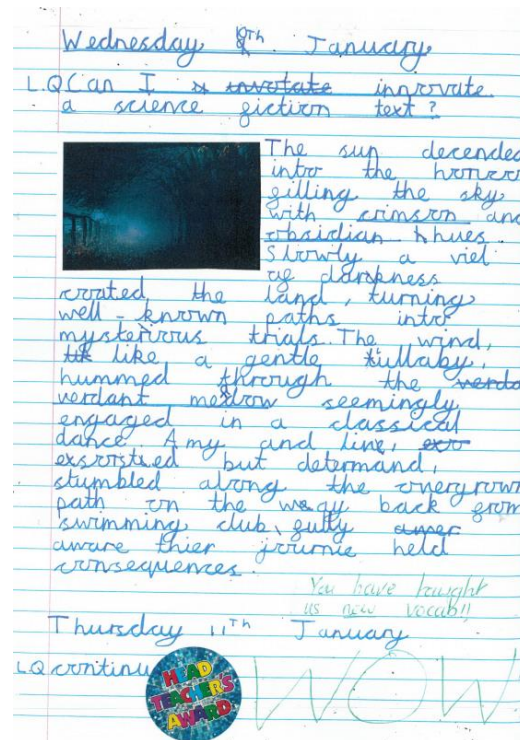 Wednesday 8th January
L.Q Can I innovate
a science fiction text?
The sun decended
into the
filling the sky
with crimson and
obsidian hues.
Slowly a viel
of darkness
coated the land, turning
well-known paths into
mysterious trials. The wind,
like a gentle lullaby,
hummed through the
verdant meadow seemingly
engaged in a classical
dance. Amy and
but determand,
stumbled along the overgrown
path on the way back from
swimming club, fully
aware thier journie held
consequences.
You have taught
us new vocab!!
Thursday 11th January
L.Q continu
HEAD
TEACHER'S
AWARD
WOW